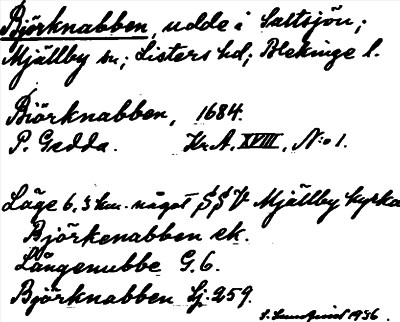 Björknabben, udde i Saltsjön;
Mjällby sn; Listers hd; Blekinge l.
Biörknabben, 1684.
P. Gedda. Kr.A. XVIII, N:o 1.
Läge 6,3 km. något SSV Mjällby kyrka
Björkenabben ek.
Längenubbe G.6.
Björknabben Lj. 259.
1936.